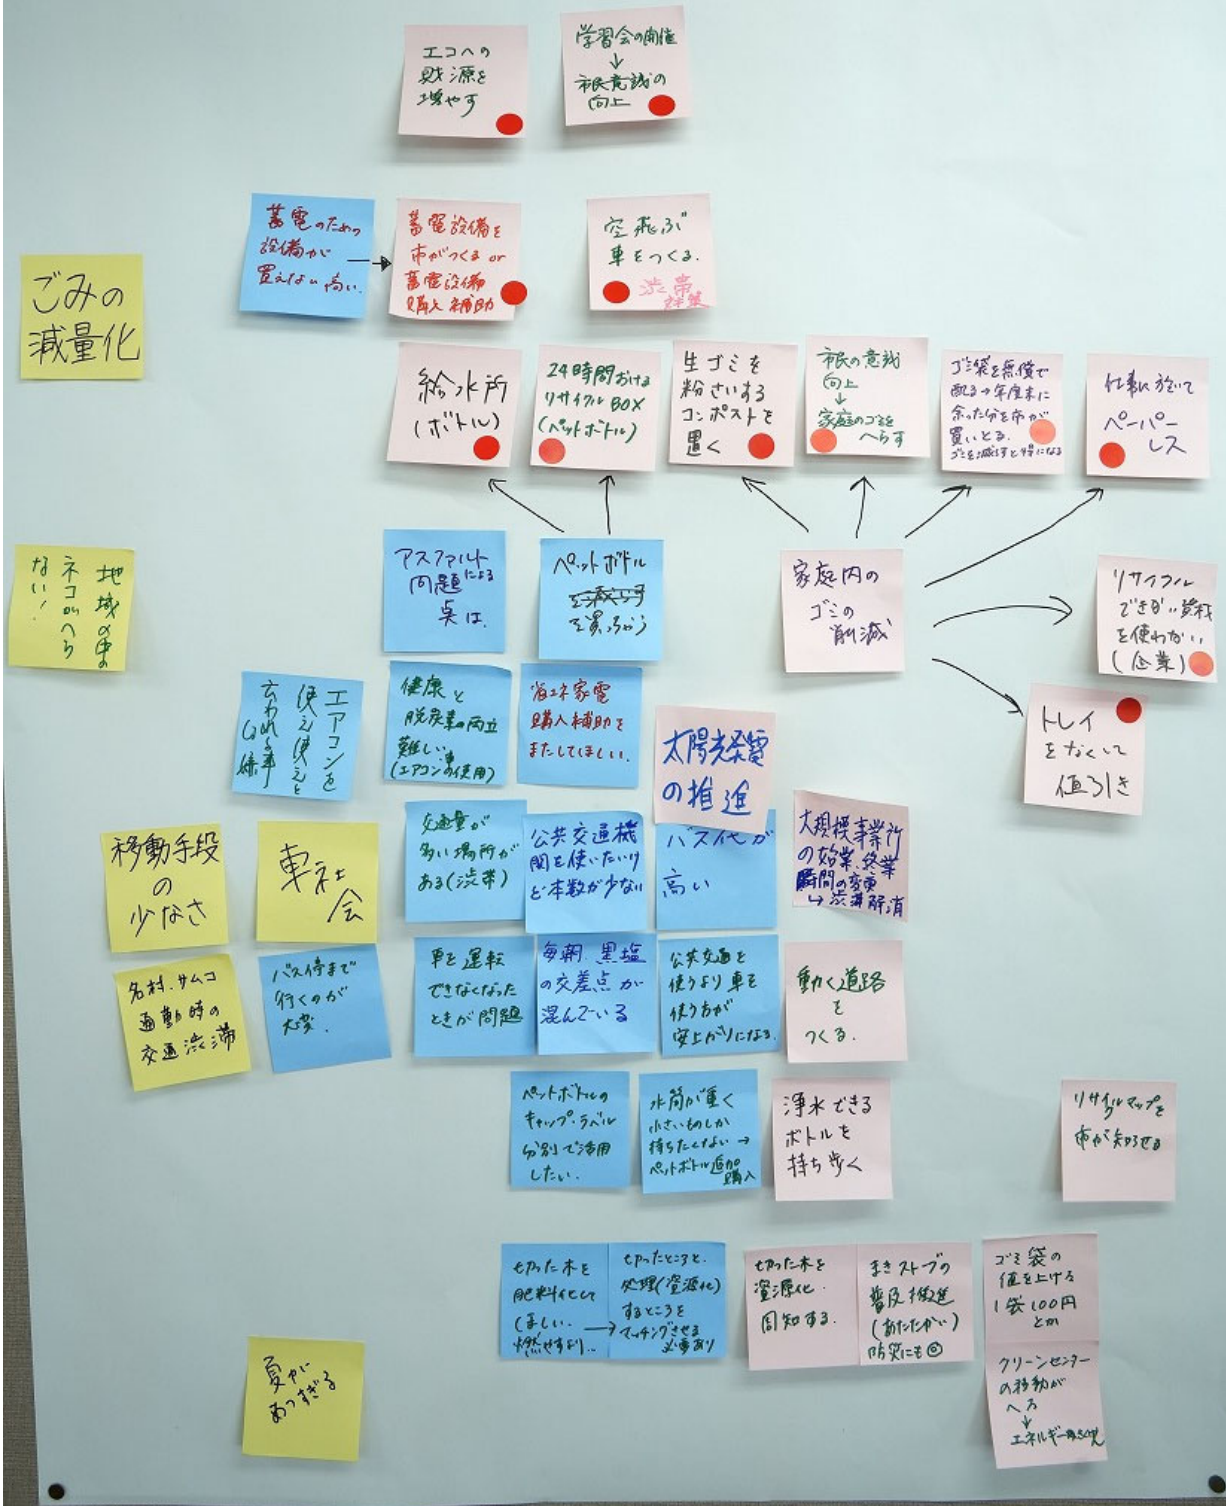 エコへの
財源を
増やす
学習会の開催
↓
市民意識の
向上
蓄電のための
設備が
買えない高い.
蓄電設備を
市がつくる or
蓄電設備
購入補助
空飛ぶ
車をつくる.
渋帯
対策
ごみの
減量化
給水所
(ボトル)
24時間おける
リサイクル BOX
(ペットボトル)
生ゴミを
粉さいする
コンポストを
置く
市民の意識
向上
↓
家庭のゴミを
へらす
ゴミ袋を無償で
配る→年度末に
余った分を市が
買いとる.
ゴミを減らすと得になる
仕事に於いて
ペーパー
レス
地域の中の
ネコがへら
ない!
アスファルト
問題による
臭は.
ペットボトル
を減らす
を買っちゃう
家庭内の
ゴミの
削減
リサイクル
できない資材
を使わない
(企業)
トレイ
をなくして
値引き
エアコンを
使え使えと
云われる事
健康と
脱炭素の両立
難しい.
(エアコンの使用)
省エネ家電
購入補助を
またしてほしい.
太陽光発電
の推進
移動手段
の
少なさ
車社
会
交通量が
多い場所が
ある(渋帯)
公共交通機
関を使いたいけ
ど本数が少ない
バス代が
高い
大規模事業所
の始業、終業
時間の変更
→渋滞解消
名村、サムコ
通勤時の
交通渋滞
バス停まで
行くのが
大変.
車を運転
できなくなった
ときが問題
毎朝、黒塩
の交差点が
混んでいる
公共交通を
使うより車を
使う方が
安上がりになる.
動く道路
を
つくる.
ペットボトルの
キャップ・ラベル
分別で活用
したい.
水筒が重く
小さいものしか
持ちたくない→
ペットボトル追加
購入
浄水できる
ボトルを
持ち歩く
リサイクルマップを
市が知らせる
切った木を
肥料化して
ほしい.
燃やすより..
切ったところと.
処理(資源化)
するところを
マッチングさせる
必要あり
切った木を
資源化.
周知する.
まきストーブの
普及推進
(あたたかい)
防災にも◎
ゴミ袋の
値を上げる
1袋100円
とか
クリーンセンター
の移動が
へる
↓
エネルギー
夏が
あつすぎる